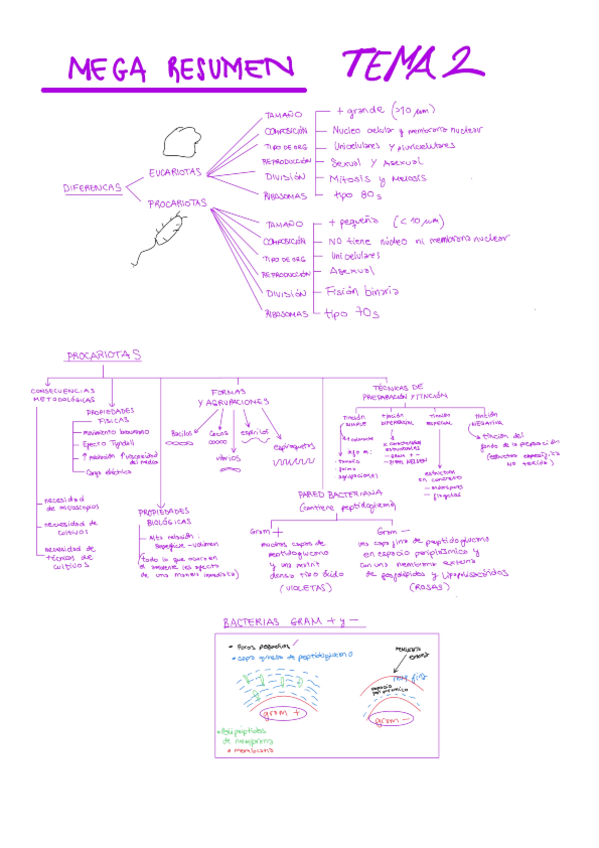 MEGA RESUMEN TEMA 2
DIFERENCIAS
EUCARIOTAS
TAMAÑO + grande (>10 μm)
COMPOSICIÓN Nucleo celular y membrana nuclear
TIPO DE ORG Unicelulares y pluricelulares
REPRODUCCIÓN Sexual y Asexual
DIVISIÓN Mitosis y Meiosis
RIBOSOMAS tipo 80s
PROCARIOTAS
TAMAÑO + pequeño (<10 μm)
COMPOSICIÓN NO tiene núcleo ni membrana nuclear
TIPO DE ORG Unicelulares
REPRODUCCIÓN Asexual
DIVISIÓN Fisión binaria
RIBOSOMAS tipo 70s
PROCARIOTAS
CONSECUENCIAS
METODOLÓGICAS
necesidad
de microscopios
necesidad de
cultivos
necesidad de
técnicas de
cultivos
PROPIEDADES
FISICAS
movimiento browniano
Efecto Tyndall
del medio
Carga eléctrica
PROPIEDADES
BIOLÓGICAS
Alta relación:
Superficie-volumen
(todo lo que ocurre en
el ambiente les afecta
de una manera inmediata)
FORMAS
Y AGRUPACIONES
Bacilos
Cocos
espirilos
vibrios
espiroquetas
TÉCNICAS DE
PREPARACIÓN Y TINCIÓN
Tinción
SIMPLE
1 colorante
tamaño
forma
agrupaciones
tinción
DIFERENCIAL
2 colorantes
Gram + -
tinción
ESPECIAL
estructuras
en concreto
flagelos
tinción
NEGATIVA
tinción del
fondo de la preparación
NO teñida)
PARED BACTERIANA
(contiene peptidoglicano)
Gram +
muchas capas de
peptidoglucano
y una matriz
densa tipo ácido
(VIOLETAS)
Gram -
una capa fina de peptidoglucano
en espacio periplásmico y
con una membrana externa
de fosfolípidos y Lipopolisacáridos
(ROSAS)
BACTERIAS GRAM + y -
capa gruesa de peptidoglucano
gram +
de membrana
membrana
membrana
externa
muy fina
espacio
periplásmico
gram -